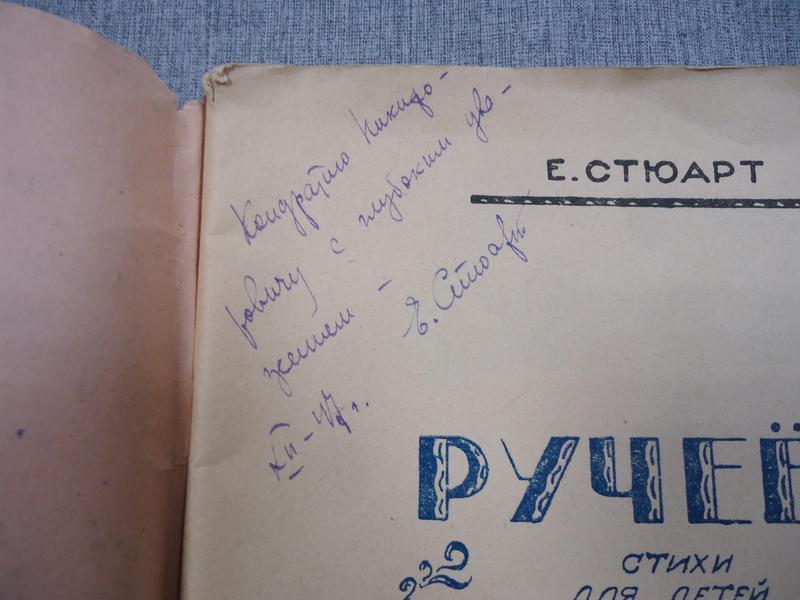 Кондратию Никифо-
ровичу с глубоким ува-
жением –
Е. Стюарт
XII – 47 г.
Е. СТЮАРТ
РУЧЕЁ
СТИХИ
ДЛЯ ДЕТЕЙ